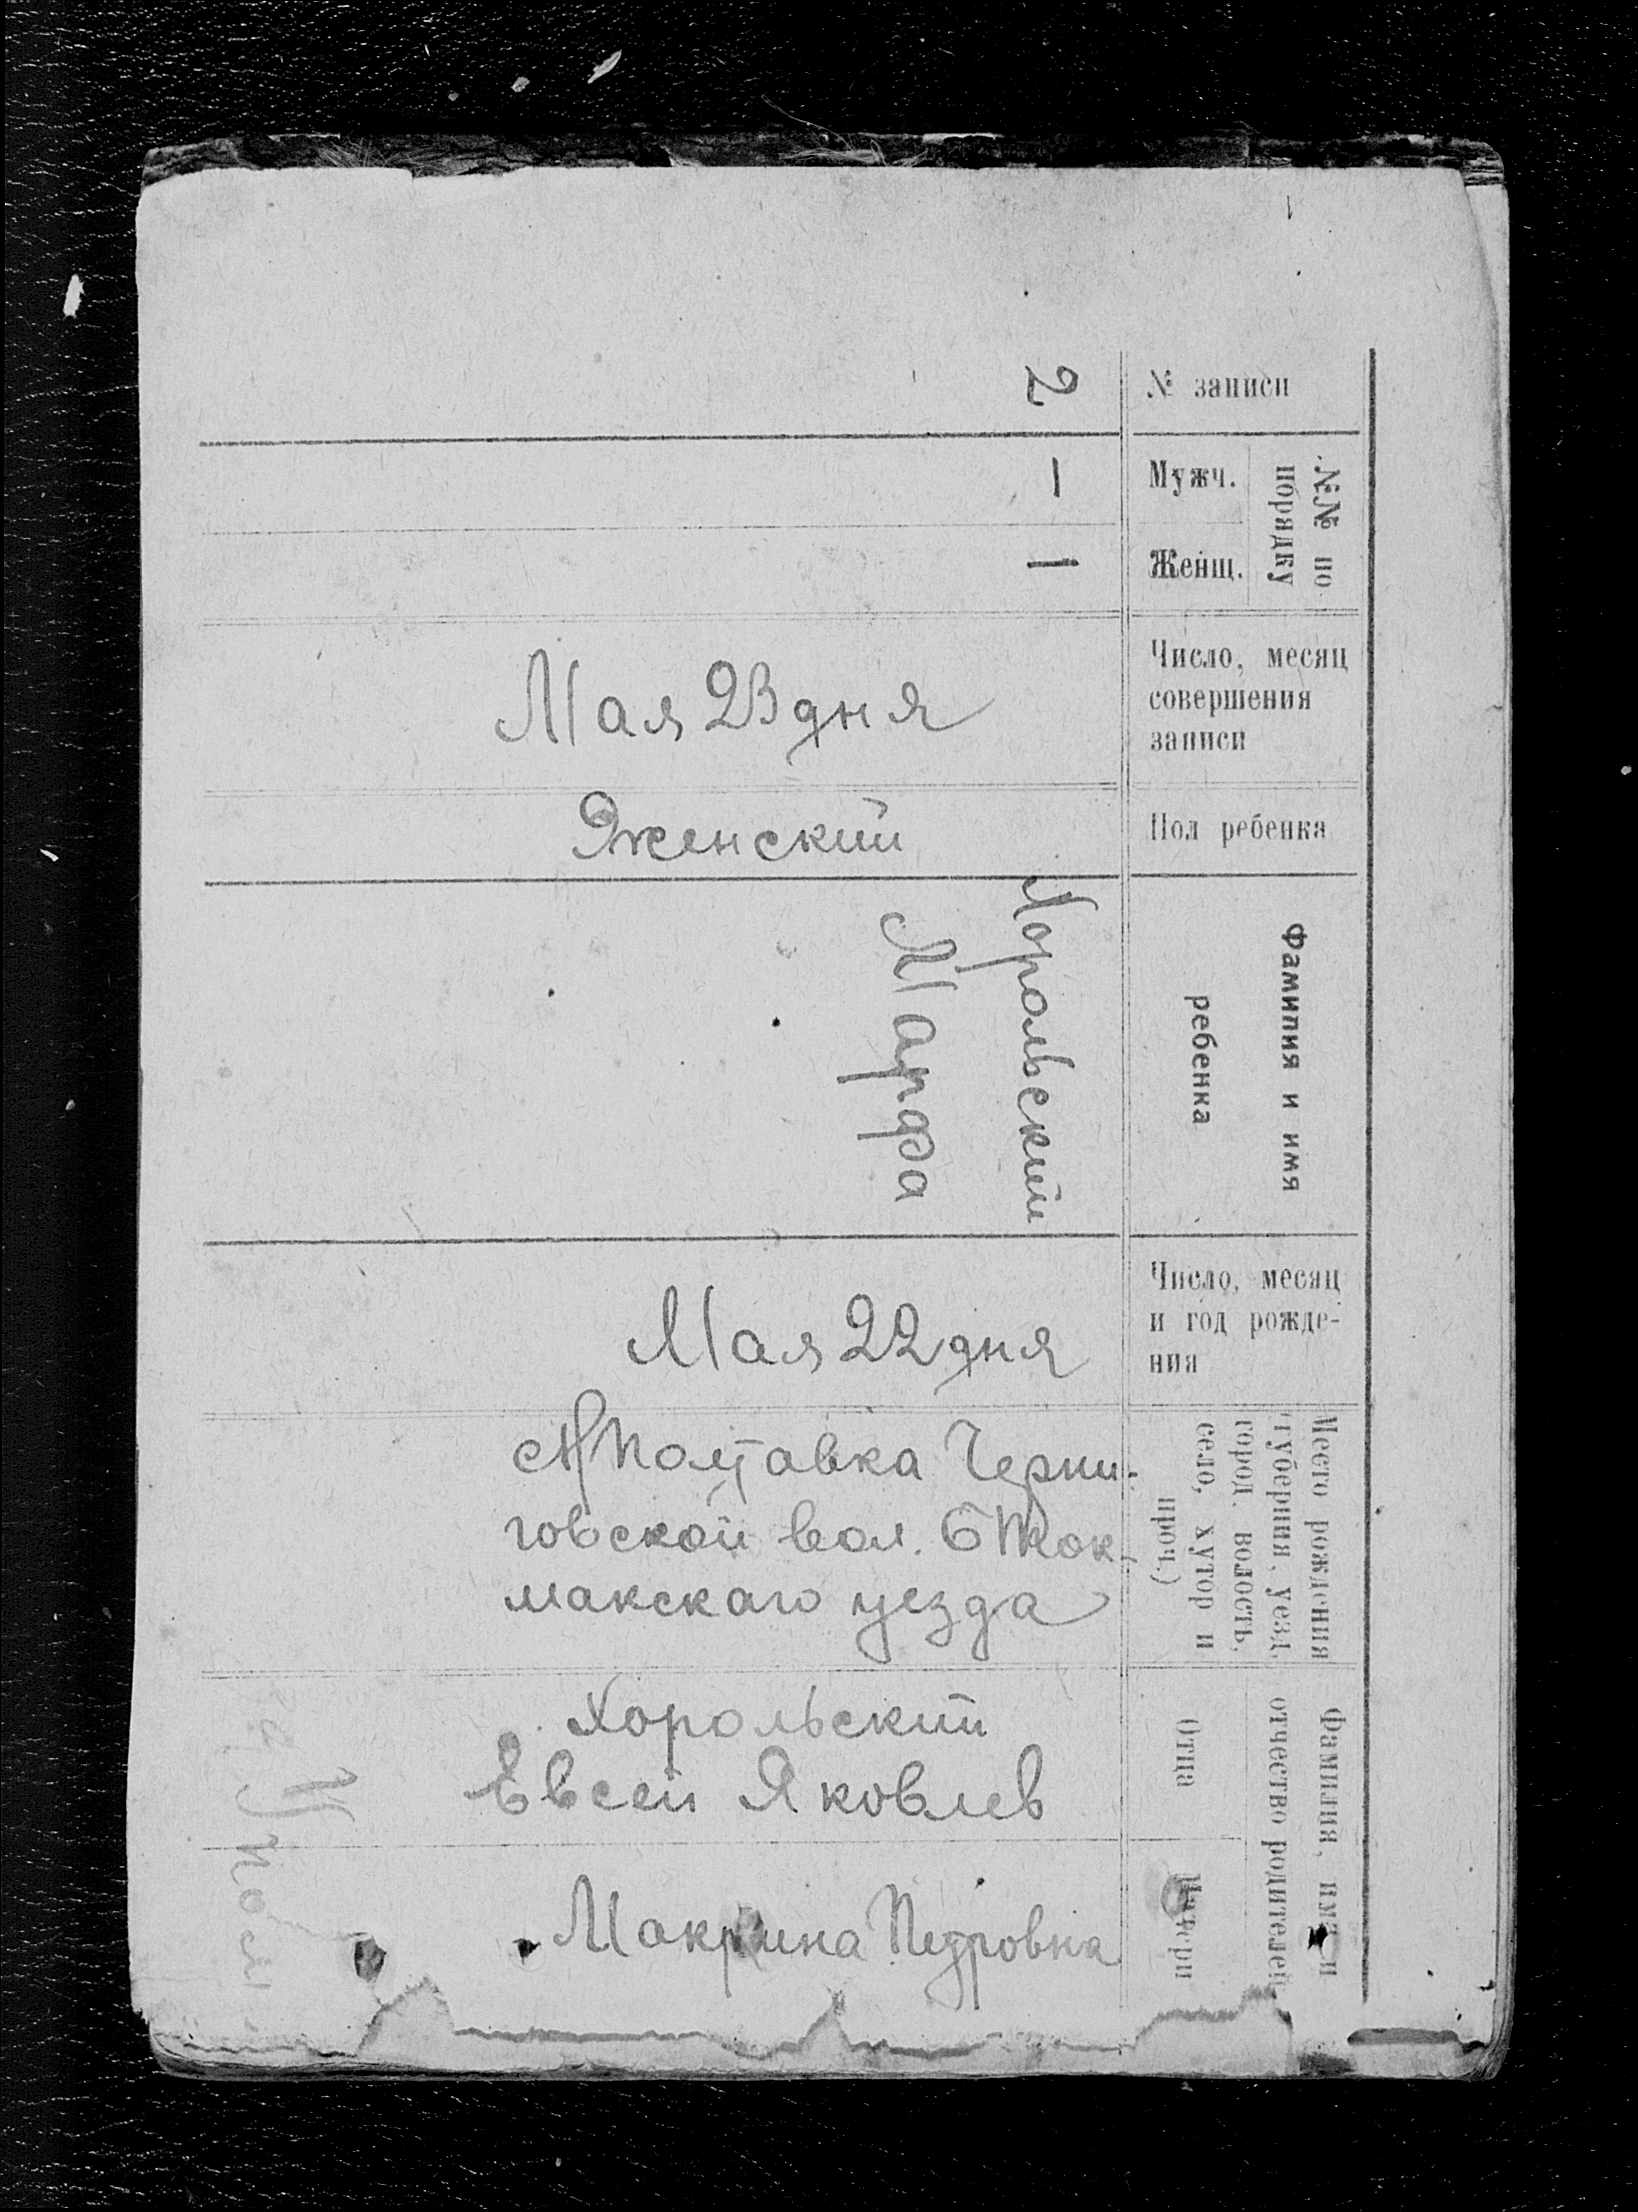 № записи
2
№№ по
порядку
Мужч.
—
Женщ.
1
Число, месяц
совершения
записи
Мая 23 дня
Пол ребенка
Женский
Фамилия и имя
ребенка
Хорольский
Марфа
Число, месяц
и год рожде-
ния
Мая 22 дня
Место рождения
(губерния, уезд,
город, волость,
село, хутор и
проч.)
Полтавка Черни-
говской вол. Б Ток-
макскаго уезда
Фамилия, имя и
отчество родителей
Отца
Хорольский
Евсей Яковлев
Матери
Макрина Петровна